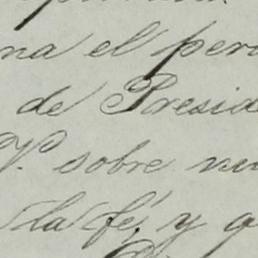 na el per
de Presid
V. sobre nu
la fé, y q